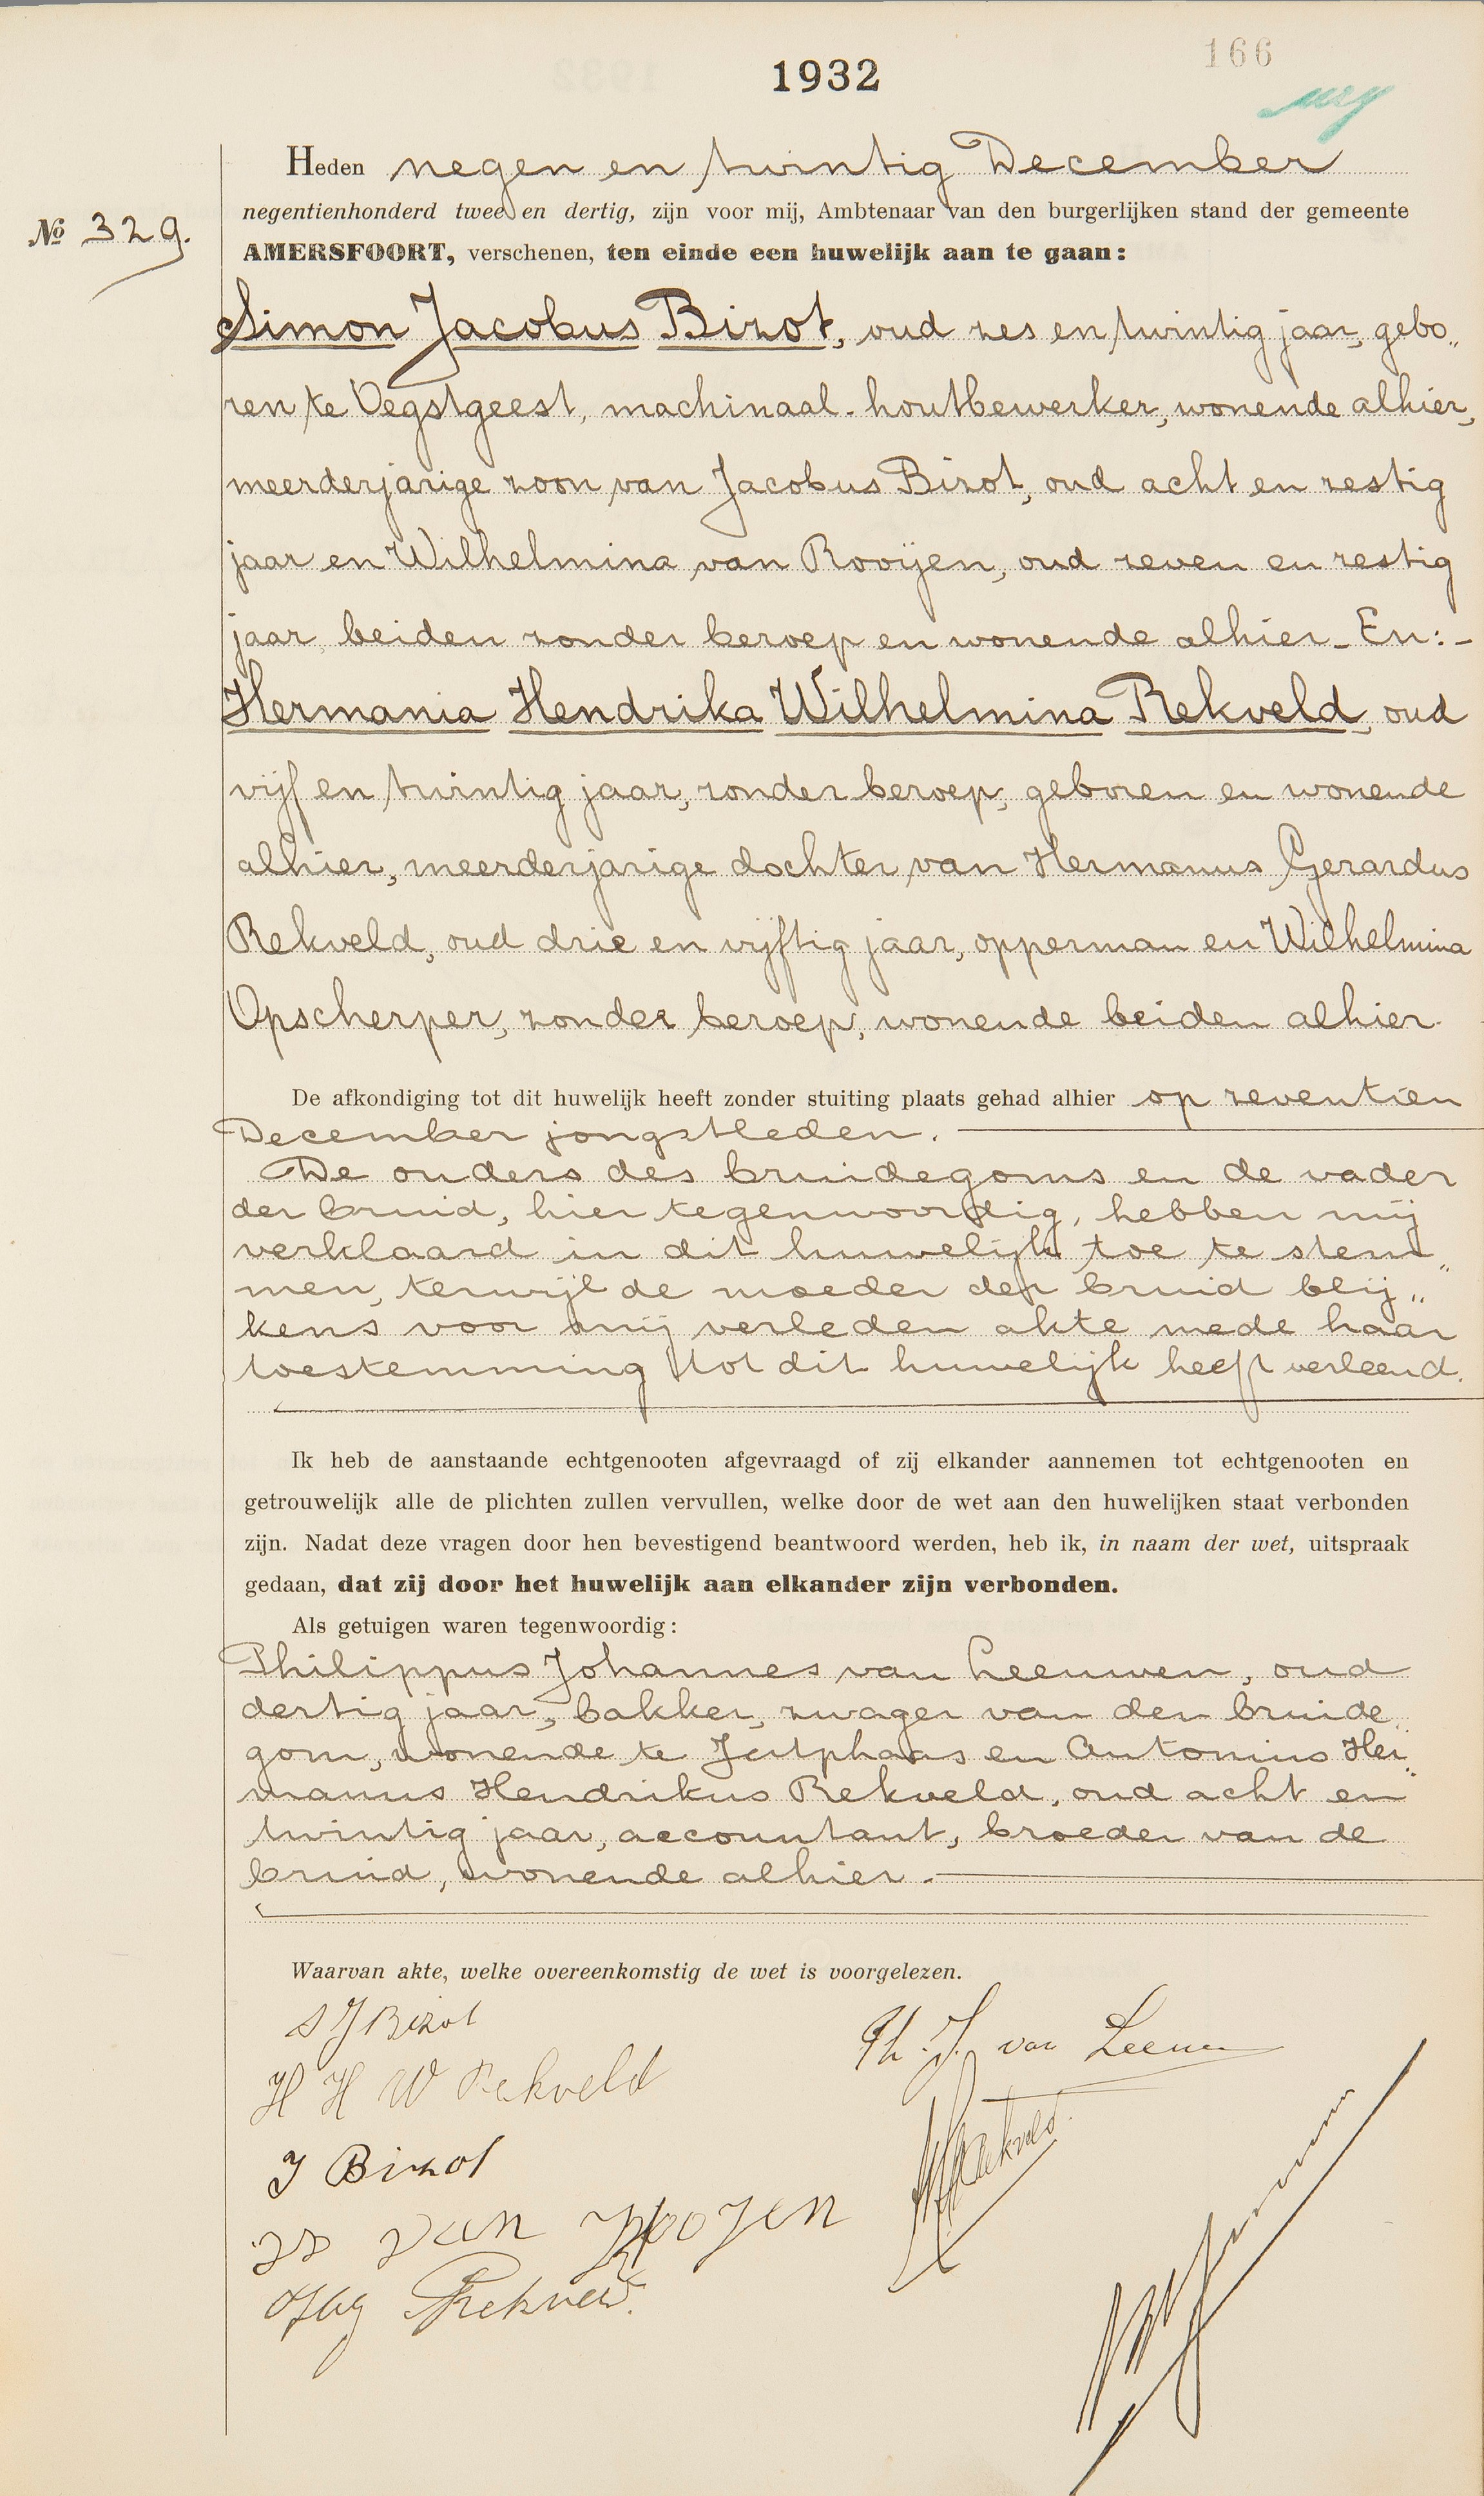 166
1932
Heden negen en twintig December
negentienhonderd twee en dertig, zijn voor mij, Ambtenaar van den burgerlijken stand der gemeente
No 329.
AMERSFOORT, verschenen, ten einde een huwelijk aan te gaan:
Simon Jacobus Bizot, oud zes en twintig jaar, gebo„
ren te Oegstgeest, machinaal-houtbewerker, wonende alhier,
meerderjarige zoon van Jacobus Bizot, oud acht en zestig
jaar en Wilhelmina van Rooijen, oud zeven en zestig
jaar, beiden zonder beroep en wonende alhier_ En:-
Hermania Hendrika Wilhelmina Rekveld, oud
vijf en twintig jaar, zonder beroep, geboren en wonende
alhier, meerderjarige dochter van Hermanus Gerardus
Rekveld, oud drie en vijftig jaar, opperman en Wilhelmina
Opscherper, zonder beroep, wonende beiden alhier
De afkondiging tot dit huwelijk heeft zonder stuiting plaats gehad alhier op zeventien
December jongstleden.
De ouders des bruidegoms en de vader
der bruid, hier tegenwoordig, hebben mij
verklaard in dit huwelijk toe te stem„
men, terwijl de moeder der bruid blij„
kens voor mij verleden akte mede haar
toestemming tot dit huwelijk heeft verleend.
Ik heb de aanstaande echtgenooten afgevraagd of zij elkander aannemen tot echtgenooten en
getrouwelijk alle de plichten zullen vervullen, welke door de wet aan den huwelijken staat verbonden
zijn. Nadat deze vragen door hen bevestigend beantwoord werden, heb ik, in naam der wet, uitspraak
gedaan, dat zij door het huwelijk aan elkander zijn verbonden.
Als getuigen waren tegenwoordig:
Philippus Johannes van Leeuwen, oud
dertig jaar, bakker, zwager van den bruide„
gom, wonende te Jutphaas en Antonius Her„
manus Hendrikus Rekveld, oud acht en
twintig jaar, accountant, broeder van de
bruid, wonende alhier.
Waarvan akte, welke overeenkomstig de wet is voorgelezen.
S J Bizot
Ph. J. van Leeuwen
H H W Rekveld
J Bizot
Rekveld
van Rooyen
Rekveld.